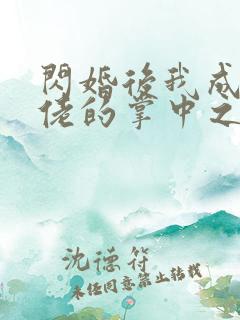 閃婚後我成
佬的掌中之
沈德符
未经同意禁止转载